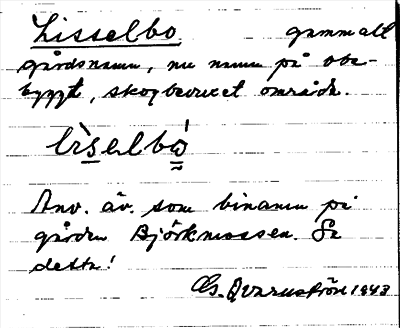 Lisselbo gammalt
gårdsnamn, nu namn på obe-
byggt, skogbevuxet område.
lìselbó
Anv. äv. som binamn på
gården Björkmossen. Se
detta!
G. Qvarnström 1943